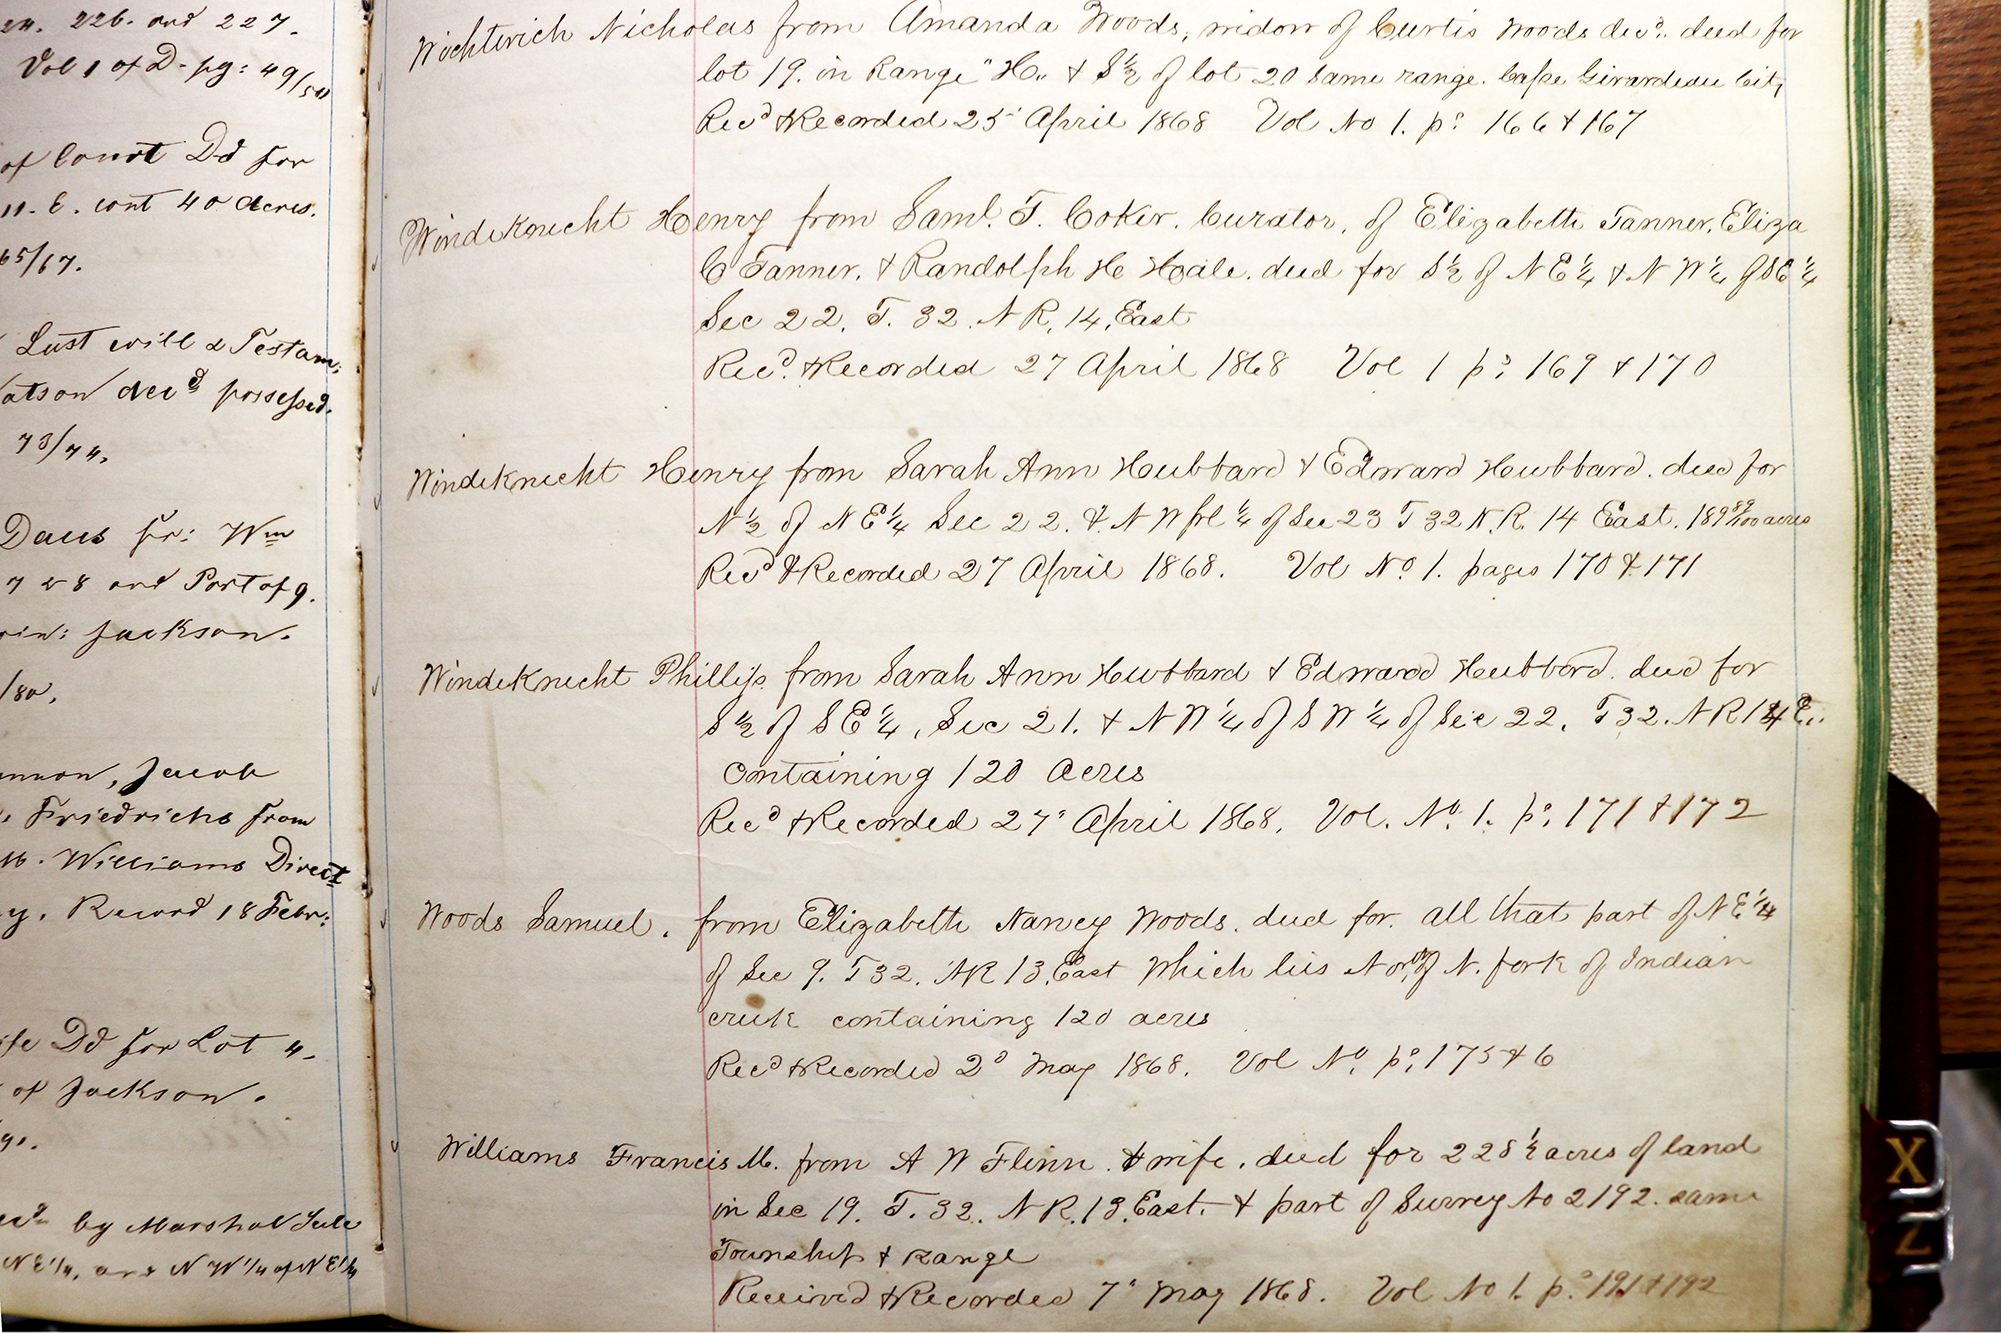 24. 226. and 227.
Vol 1 of D. pg: 49/50
of Court Dd for
11. E. cont 40 acres.
65/67.
Last will & Testam:
atson decd possessed.
73/74.
Daus fr: Wm
7 & 8 and Part of 9.
Jackson.
/80.
Jacob
Friedrichs from
Williams Direct
y. Record 18 Febr:
fe Dd for Lot 4.
of Jackson.
90.
by Marshal Sale
NE 1/4, and N W 1/4 of N E 1/4
Wichterich Nicholas from Amanda Woods, widow of Curtis Woods decd. deed for
lot 19. in Range "H" & S 1/2 of lot 20 same range. Cape Girardeau City
Recd & Recorded 25 April 1868 Vol No 1. ps 166 & 167
Windeknecht Henry from Saml. T. Coker. Curator, of Elizabeth Tanner, Eliza
C Tanner. & Randolph H Hale. deed for S 1/2 of N E 1/4 & N W 1/4 of S E 1/4
Sec 22. T. 32. N R, 14, East
Recd. & Recorded 27 April 1868 Vol 1 ps. 169 & 170
Windeknecht Henry from Sarah Ann Hubbard & Edward Hubbard. deed for
N 1/2 of N E 1/4 Sec 22. & N W frl 1/4 of Sec 23 T 32 N. R. 14 East. 189 99/100 acres
Recd & Recorded 27 April 1868. Vol No 1. pages 170 & 171
Windeknecht Phillip from Sarah Ann Hubbard & Edward Hubbard. deed for
S 1/2 of S E 1/4, Sec 21. & N W 1/4 of S W 1/4 of Sec 22. T 32. N R 14 E.
Containing 120 Acres
Recd & Recorded 27 April 1868. Vol. No. 1. ps. 171 & 172
Woods Samuel. from Elizabeth Nancy Woods. deed for. all that part of N E 1/4
of Sec 9. T 32. N R 13. East which lies North of N. fork of Indian
creek containing 120 acres
Recd & Recorded 2d May 1868. Vol No. ps. 175 & 6
Williams Francis M. from A W Flinn. & wife. deed for 228 1/2 acres of land
in Sec 19. T. 32. N R. 13. East. & part of Survey No 2192. same
Township & Range
Received & Recorded 7 May 1868. Vol No 1. ps. 191 & 192
X
Z